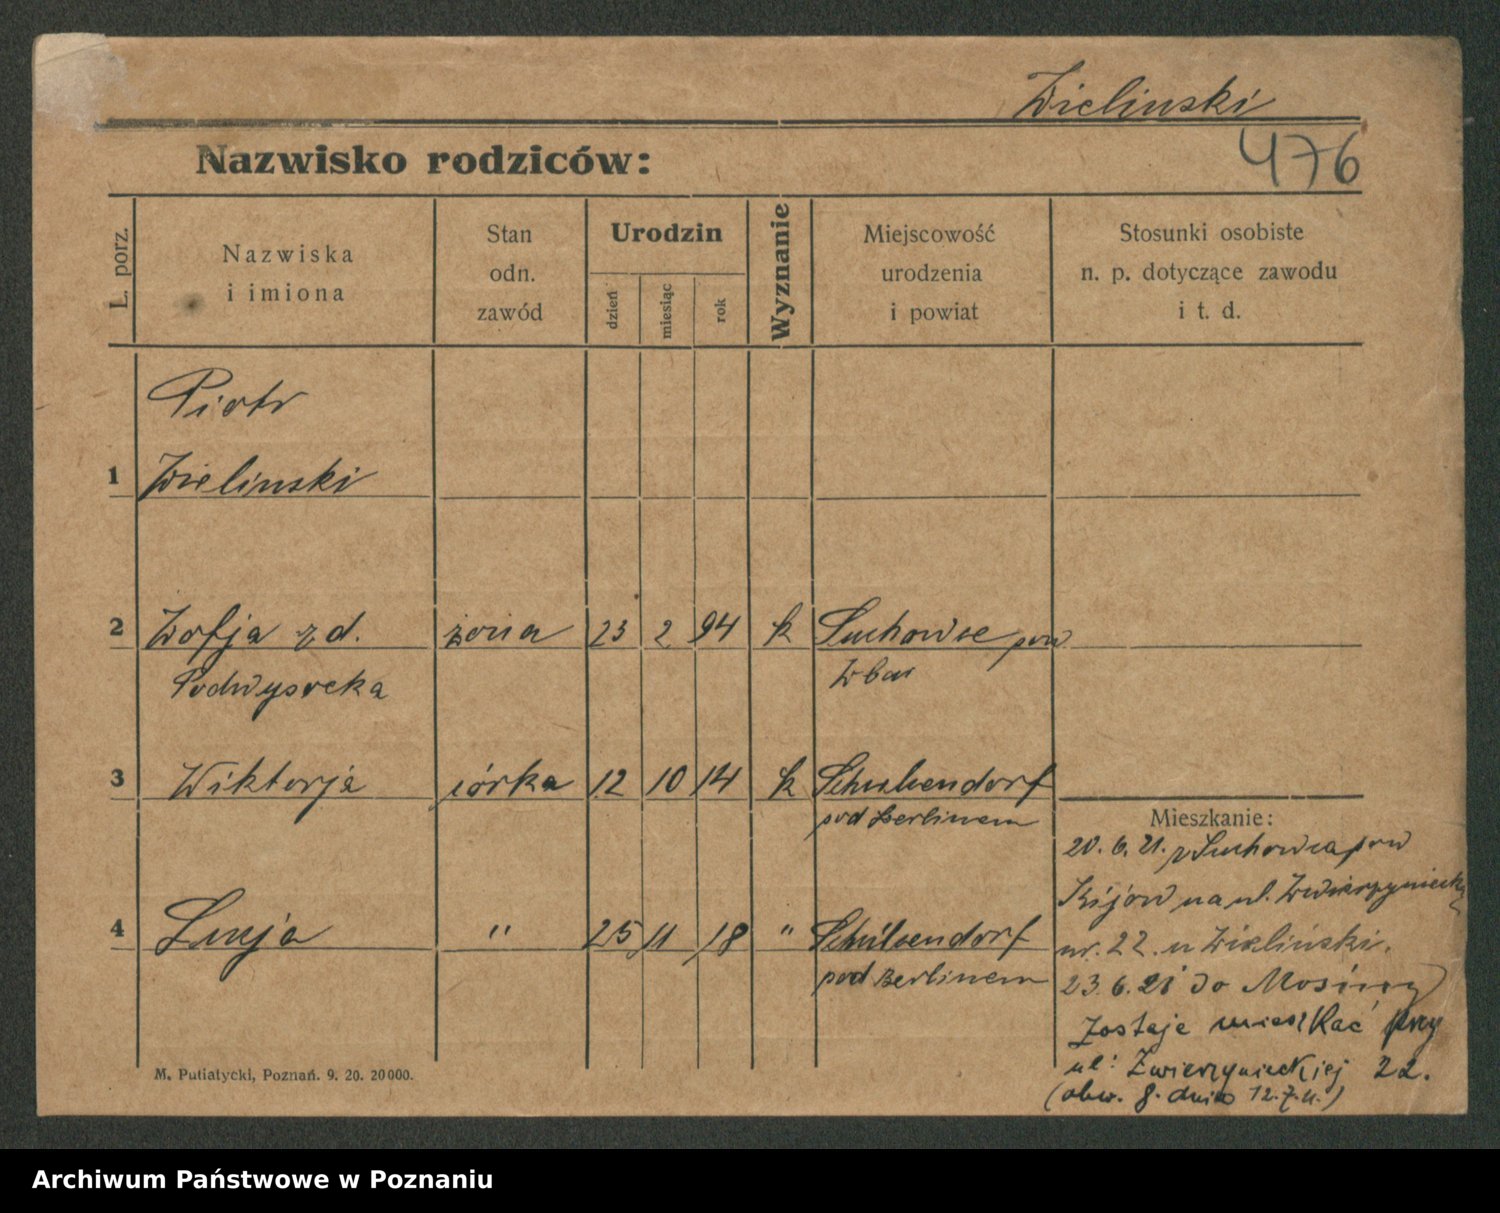 Zielinski
476
Nazwisko rodziców:
L. porz.
Nazwiska
i imiona
Stan
odn.
zawód
Urodzin
dzień
miesiąc
rok
Wyznanie
Miejscowość
urodzenia
i powiat
Stosunki osobiste
n. p. dotyczące zawodu
i t. d.
Piotr
1 Zielinski
2 Zofja z d. żona 23 2 94 k Suchowce pow
Podwysocka
3 Wiktorja córka 12 10 14 k
pod Berlinem
4 Lucja " 25 11 18 "
pod Berlinem
Mieszkanie:
20. 6. 21. z Suchowca pow
Kijów na ul. Zwierzyniecką
nr. 22. u Zieliński.
23. 6. 21 do Mosiny
Zostaje mieszkać przy
ul: Zwierzynieckiej 22.
dnia
M. Putiatycki, Poznań. 9. 20. 20000.
Archiwum Państwowe w Poznaniu